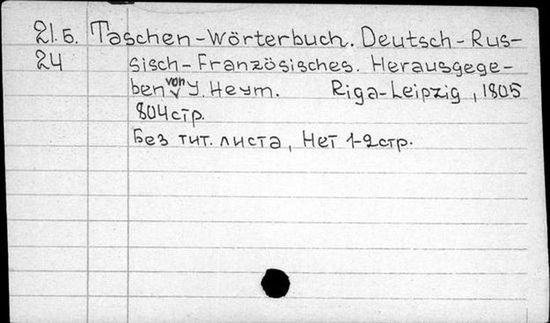 21.5. Taschen-Wörterbuch. Deutsch-Rus-
24 sisch-Französisches. Herausgege-
ben von J. Heym. Riga-Leipzig, 1805
804стр.
Без тит. листа, Нет 1-2стр.